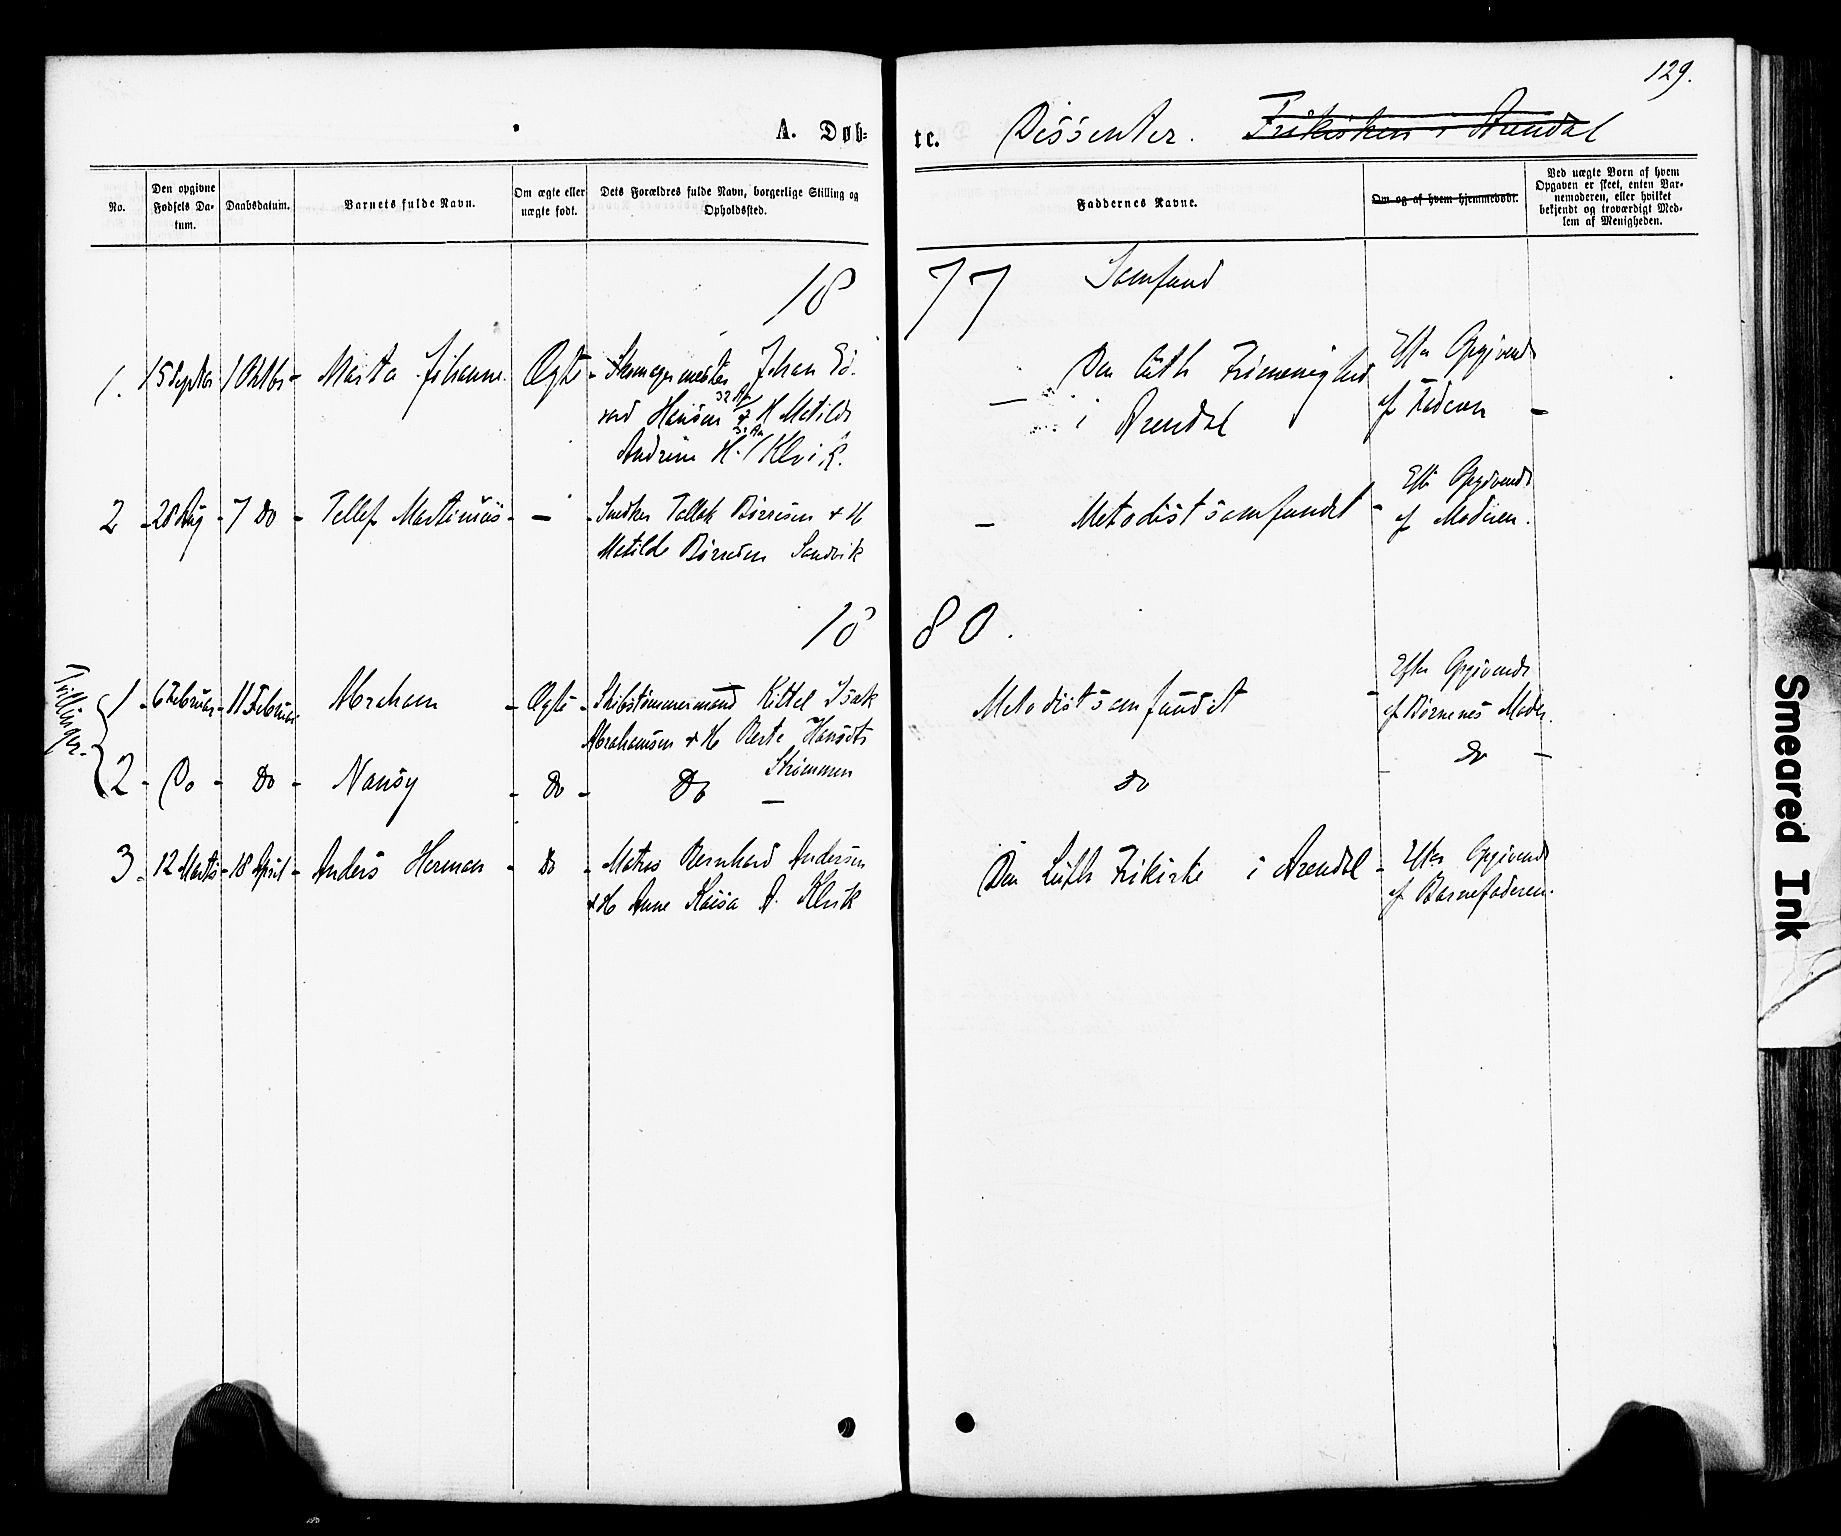 129.
A. Døb-
te. Dissenter. Frikirken i Arendal
No.
Den opgivne Fødsels Da-
tum.
Daabsdatum.
Barnets fulde Navn.
Om ægte eller
uægte født.
Dets Forældres fulde Navn, borgerlige Stilling og
Opholdssted.
Faddernes Navne.
Om og af hvem hjemmedøbt.
Ved uægte Born af hvem
Opgaven er skeet, enten Bar-
nemoderen, eller hvilket
bekjendt og troværdigt Med-
lem af Menigheden.
18 77
Samfund
1. 15 Septbr 1 Oktbr - Marta Johanne. Ægte - Skomagermester Johan Ed-
vard Hansen & H Matilde
Andrine H. / Klvik.
Den luth Frimenighed
i Arendal
Efter Opgivende
af Faderen -
2 - 28 Aug - 7 Do - Tellef Martinius - - - Snedker Tellak Børresen + H
Matilde Børresen Sandvik
- Metodistsamfundet -
Eft Opgivende
af Moderen.
18 80.
Tvillinger.
1 - 6 Februar - 11 Februar Abraham - Ægte - Skibstømmermand Kittel Isak
Abrahamsen + H Berte Hansdtr
Strømmen
Metodistsamfundet -
Efter Opgivende
af Børnenes Moder.
2 - Do - Do - Nansy - Do - Do -
Do - Do -
3 - 12 Marts - 18 April - Anders Herman - Do - Matros Bernhard Andersen
+ H Anne Kaisa A. Klvik
Den Luth Frikirke i Arendal -
Efter Opgivende
af Barnefaderen.
Smeared Ink